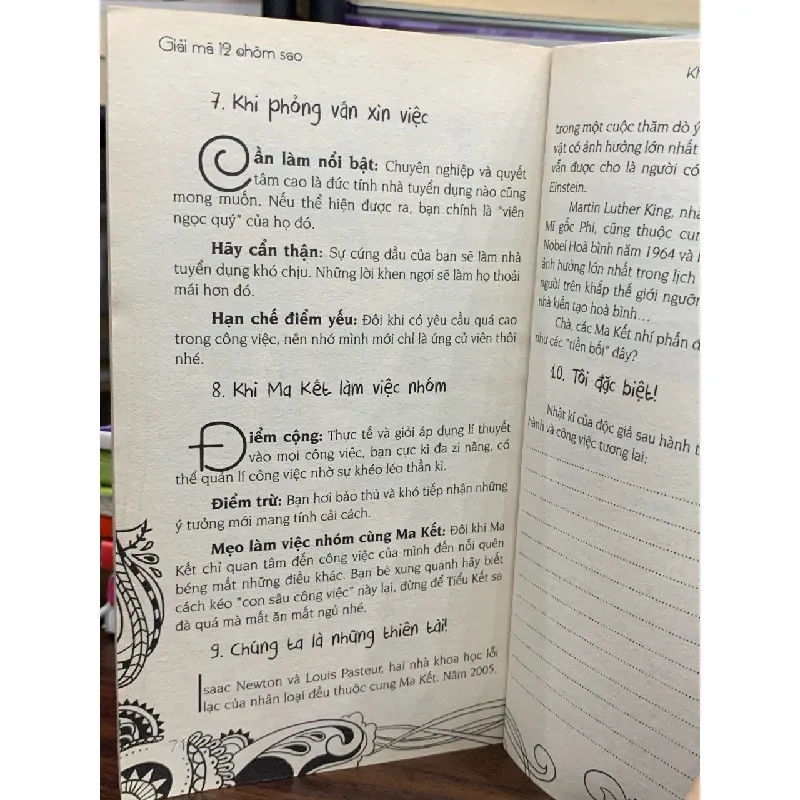 Giải mã 12 chòm sao
7. Khi phỏng vấn xin việc
Cần làm nổi bật: Chuyên nghiệp và quyết
tâm cao là đức tính nhà tuyển dụng nào cũng
mong muốn. Nếu thể hiện được ra, bạn chính là "viên
ngọc quý" của họ đó.
Hãy cẩn thận: Sự cứng đầu của bạn sẽ làm nhà
tuyển dụng khó chịu. Những lời khen ngợi sẽ làm họ thoải
mái hơn đó.
Hạn chế điểm yếu: Đôi khi có yêu cầu quá cao
trong công việc, nên nhớ mình mới chỉ là ứng cử viên thôi
nhé.
8. Khi Ma Kết làm việc nhóm
Điểm cộng: Thực tế và giỏi áp dụng lí thuyết
vào mọi công việc, bạn cực kì đa zi năng, có
thể quản lí công việc nhờ sự khéo léo thần kì.
Điểm trừ: Bạn hơi bảo thủ và khó tiếp nhận những
ý tưởng mới mang tính cải cách.
Mẹo làm việc nhóm cùng Ma Kết: Đôi khi Ma
Kết chỉ quan tâm đến công việc của mình đến nỗi quên
béng mất những điều khác. Bạn bè xung quanh hãy biết
cách kéo "con sâu công việc" này lại, đừng để Tiểu Kết sa
đà quá mà mất ăn mất ngủ nhé.
9. Chúng ta là những thiên tài!
Isaac Newton và Louis Pasteur, hai nhà khoa học lỗi
lạc của nhân loại đều thuộc cung Ma Kết. Năm 2005,
71
trong một cuộc thăm dò ý
vật có ảnh hưởng lớn nhất
vẫn được cho là người có
Einstein.
Martin Luther King, nhà
Mĩ gốc Phi, cũng thuộc cun
Nobel Hoà bình năm 1964 và
ảnh hưởng lớn nhất trong lịch
người trên khắp thế giới ngưỡn
nhà kiến tạo hoà bình...
Chà, các Ma Kết nhí phấn đ
như các "tiền bối" đây?
10. Tôi đặc biệt!
Nhật kí của độc giả sau hành t
hành và công việc tương lai: